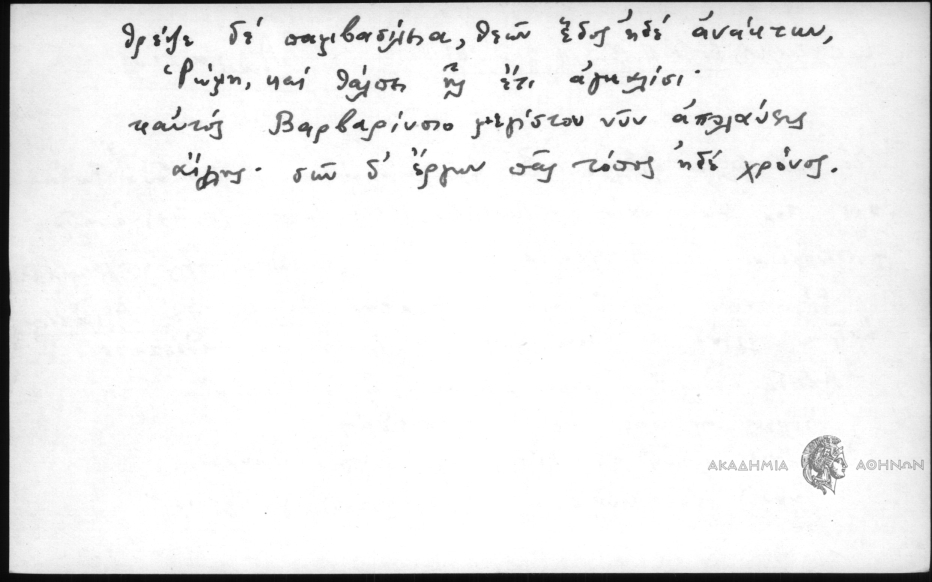 θρέψε δέ παμβασίλεια, θεῶν ἕδος ἠδέ ἀνάκτων,
Ῥώμη, καί θάλπει ἧς ἔτι ἀγκαλίσι·
καὐτός Βαρβαρίνοιο μεγίστου νῦν ἀπολαύεις
αἴγλης· σῶν δ' ἔργων πᾶς τόπος ἠδέ χρόνος.
ΑΚΑΔΗΜΙΑ ΑΘΗΝΩΝ